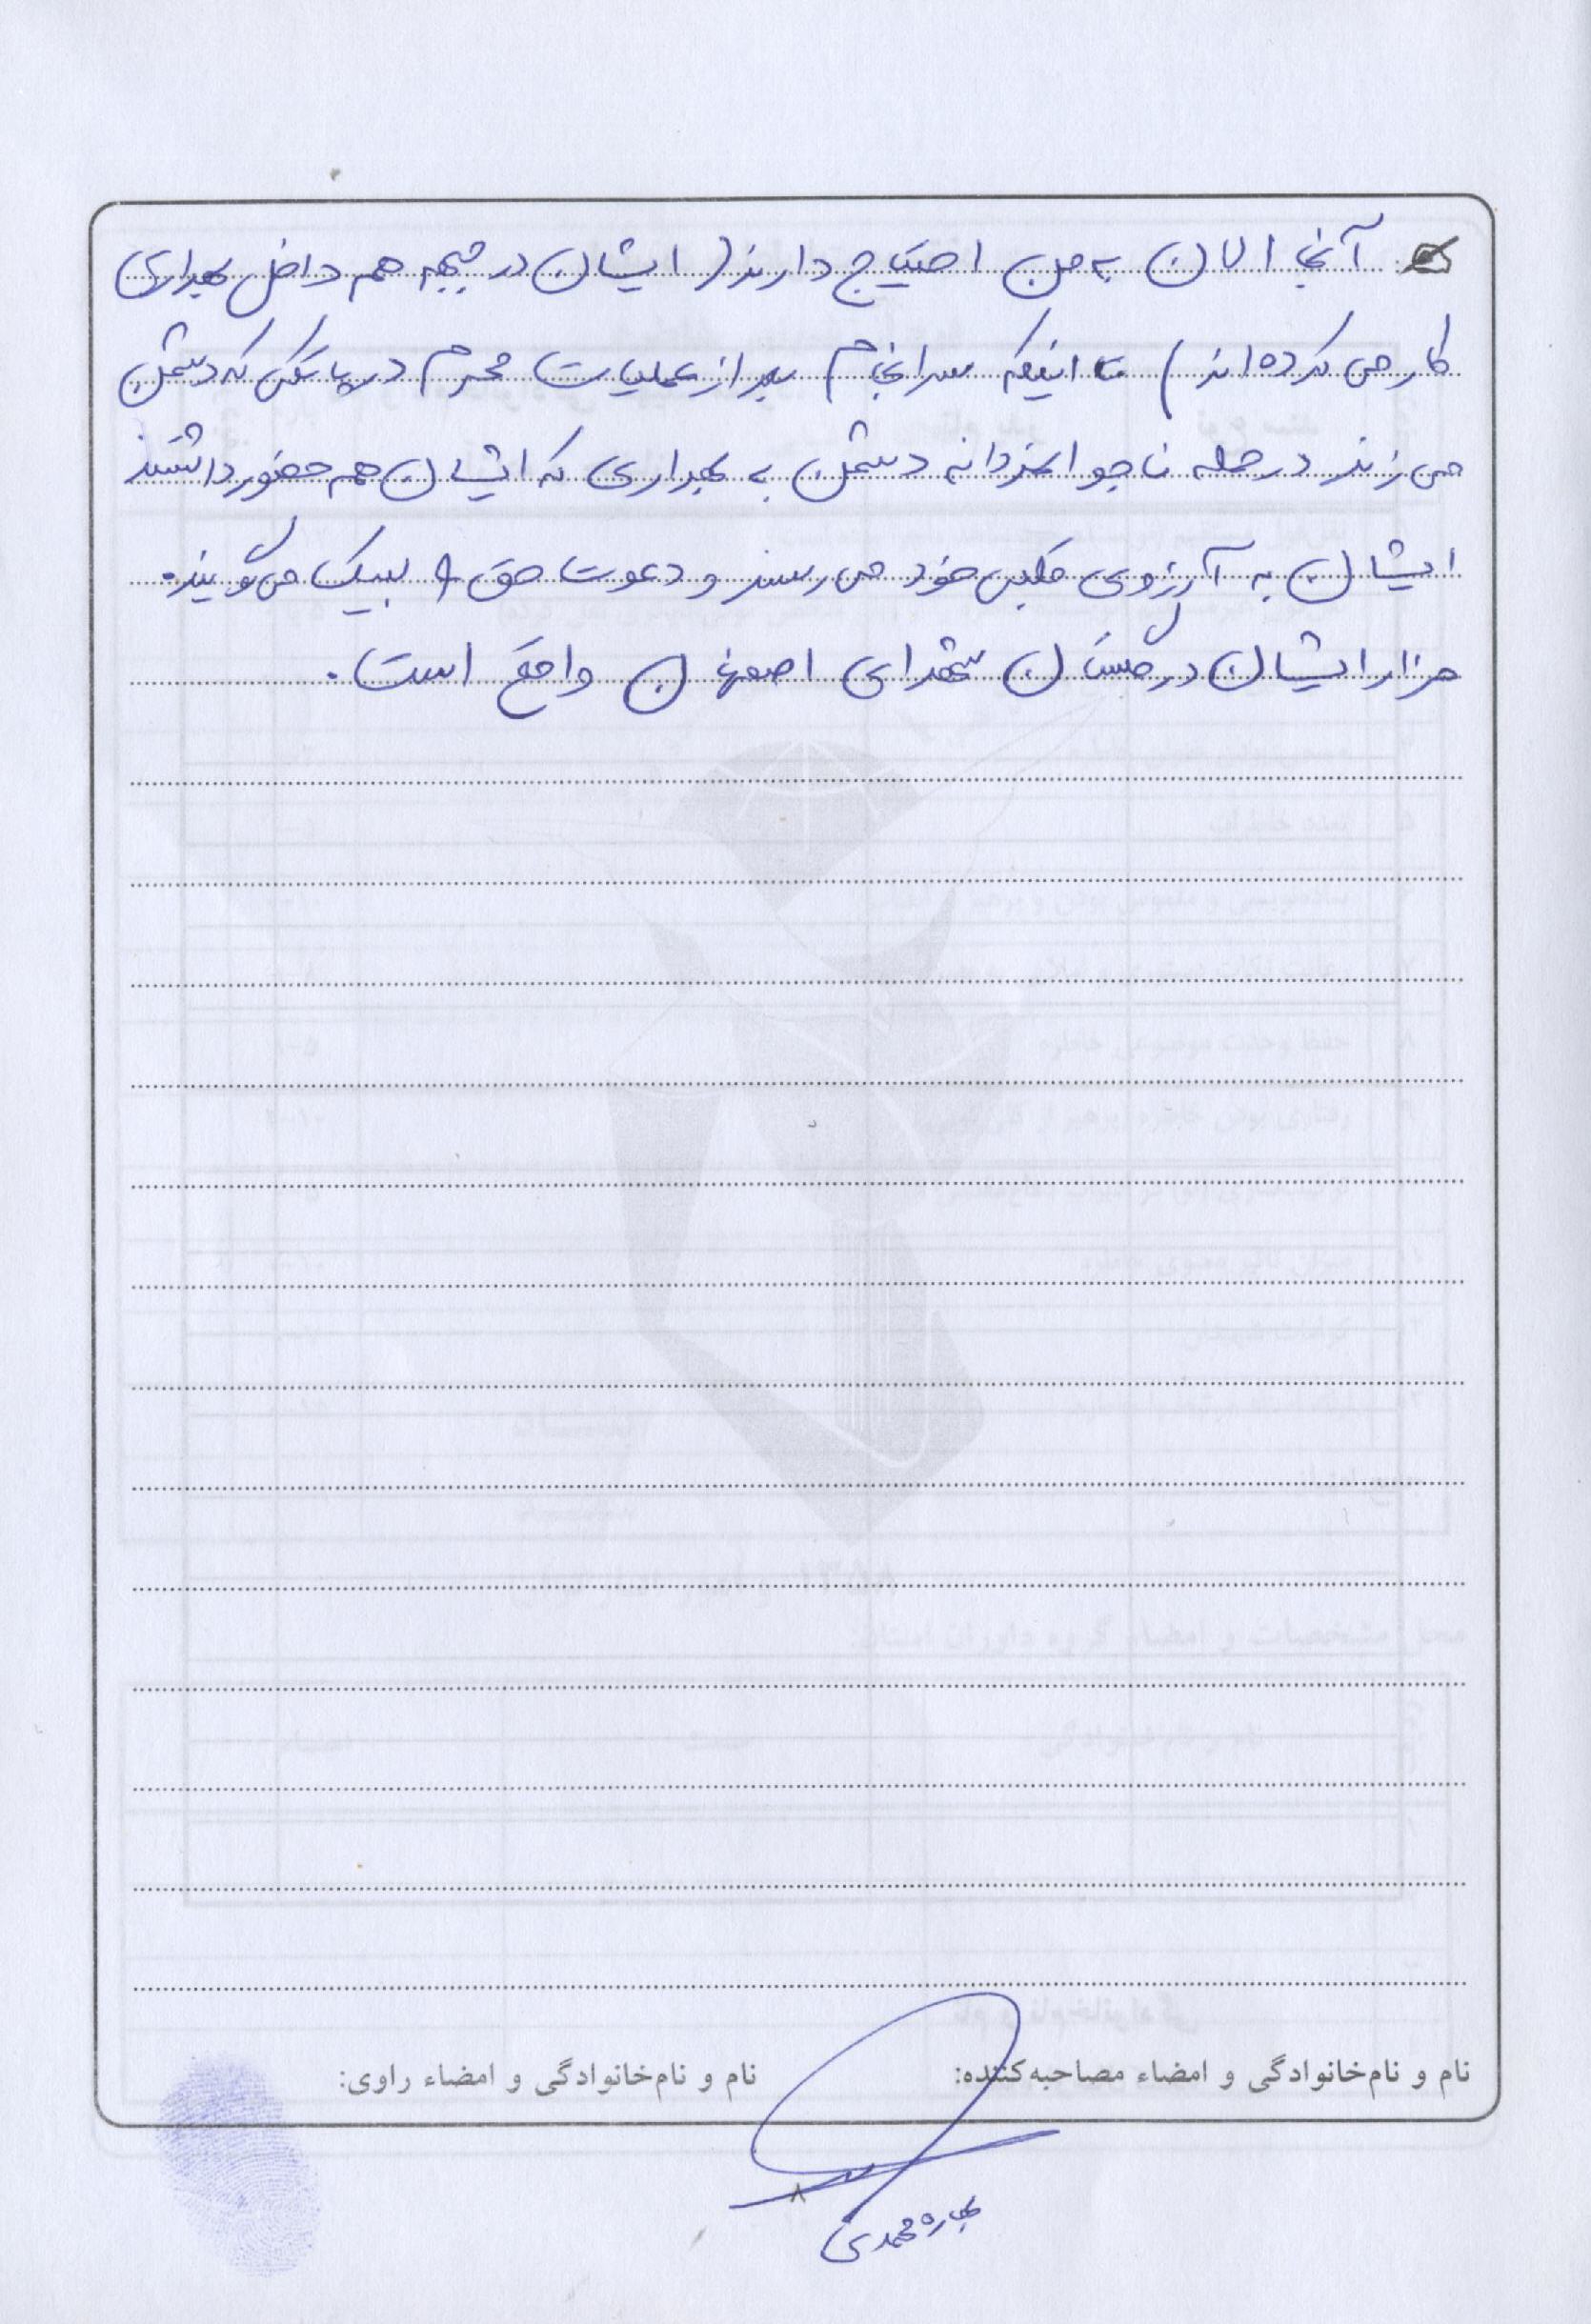 آنجا الان به من احتیاج دارند ( ایشان در جبهه هم داخل بهداری
کار می کرده اند ) تا اینکه سرانجام بعد از عملیات محرم در پاتکی که دشمن
می زند در حمله ناجوانمردانه دشمن به بهداری که ایشان هم حضور داشتند
ایشان به آرزوی قلبی خود می رسند و دعوت حق را لبیک می گویند.
مزار ایشان در گلستان شهدای اصفهان واقع است.
نام و نام‌خانوادگی و امضاء مصاحبه‌کننده:
نام و نام‌خانوادگی و امضاء راوی:
۸
بهاره محمدی